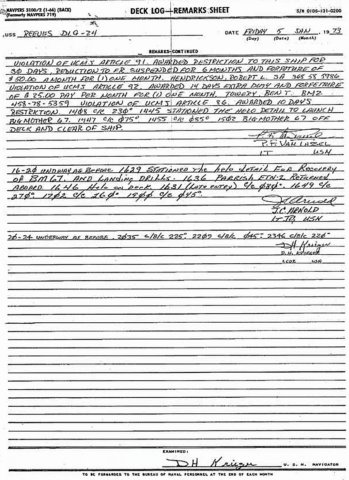 NAVPERS 3100/2 (1-66) (BACK)
(Formerly NAVPERS 719)
DECK LOG—REMARKS SHEET
S/N 0106-131-0200
USS REEVES DLG-24
DATE FRIDAY 5 JAN 1973
(Day) (Date) (Month)
REMARKS-CONTINUED
VIOLATION OF UCMJ ARTICLE 91. AWARDED RESTRICTION TO THIS SHIP FOR
30 DAYS, REDUCTION TO FR SUSPENDED FOR 6 MONTHS AND FORFEITURE OF
$50.00 A MONTH FOR (1) ONE MONTH. HENDRICKSON, ROBERT L. SA
VIOLATION OF UCMJ ARTICLE 92. AWARDED 14 DAYS EXTRA DUTY AND FORFEITURE
OF $25.00 PAY PER MONTH FOR (1) ONE MONTH. BM2
VIOLATION OF UCMJ ARTICLE 36. AWARDED 10 DAYS
RESTRICTION. 1403 C/C 230° 1445 STATIONED THE HELO DETAIL TO LAUNCH
BIG MOTHER 67. 1447 C/C 075° 1455 C/C 055° 1502 BIG MOTHER 67 OFF
DECK AND CLEAR OF SHIP.
LT USN
16-20 UNDERWAY AS BEFORE 1629 STATIONED THE HELO DETAIL FOR RECOVERY
OF BM 67, AND LANDING DRILLS. 1636 PARRISH RETURNED
ABOARD 1646 HELO ON DECK. 1631 (LATE ENTRY) C/C 030°. 1649 C/C
270°. 1702 C/C 260° 1800 C/C 045°.
J.C. ARNOLD
LTJG USN
20-24 UNDERWAY AS BEFORE. 2035 C/C 225°. 2209 C/C 045°. 2346 C/C 226°
D.H. Krieger
D.H. KRIEGER
LCDR USN
EXAMINED:
D H Krieger U. S. N. NAVIGATOR
TO BE FORWARDED TO THE BUREAU OF NAVAL PERSONNEL AT THE END OF EACH MONTH